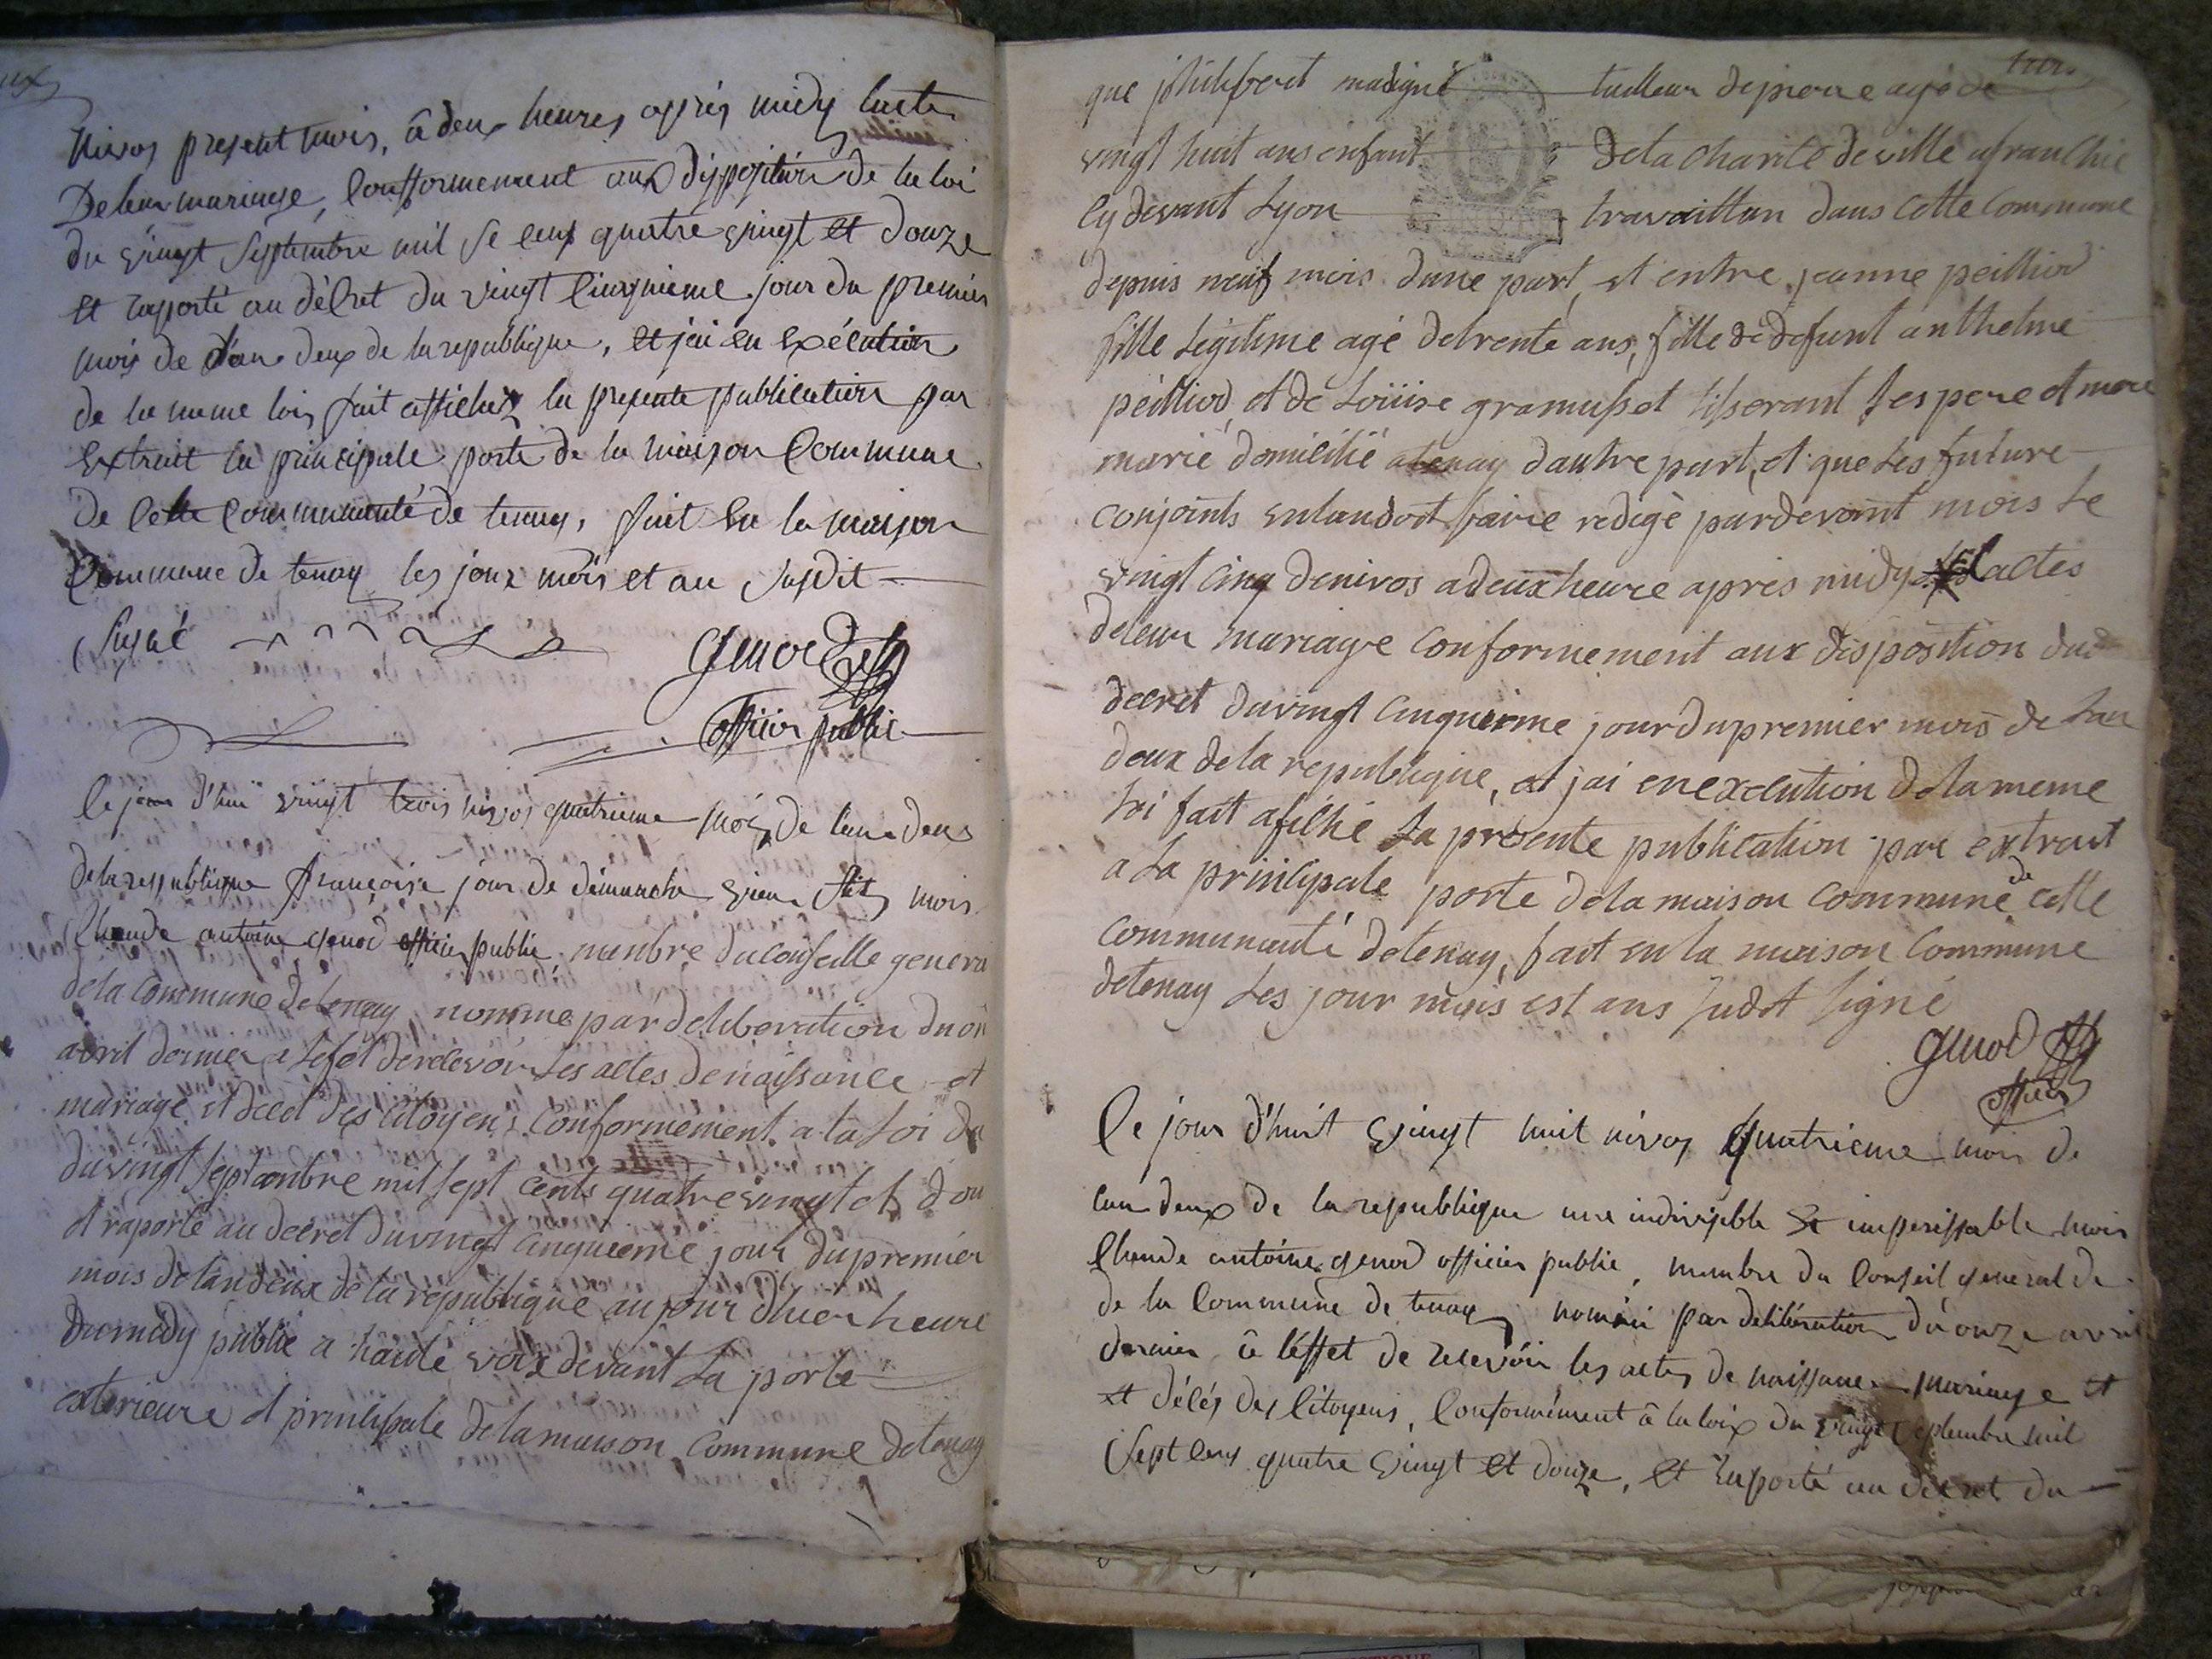 nivos present mois, â deux heures apprés midy lacte
De leur mariage, Confformement aux dispositions de la loi
du vingt Septembre mil se cens quatre vingt et douze
et raporté au décret du vingt Cinquieme jour du premier
mois de l'an deux de la republique, et jai en exécution
de la meme loi, fait afficher la presente publication par
extrait la principale porte de la maison Commune
de Cette Communauté de tenay, fait en la maison
Commune de tenay les jour mois et an susdit
Signé genod
officier public
Ce jour d'hui vingt trois nivos quatrieme mois de l'ane deux
de la republique françoise jour de dimanche vieux stil, mois
Claude antoine genod officier public, menbre du conseille genera
de la Commune de tenay nomme par deliberation du on
avril dernier a lefet de recevoir Les actes de naissance et
mariage et deces des citoyens Conformement a la Loi du
du vingt septanbre mil sept cents quatre vingt et dou
et raporté au decret du vingt cinquieme jour du premier
mois de lan deux de la republique au jour dhier heure
de midy publié a haute voix devant La porte
exterieure et principale de la maison Commune de tenay
trois
que philibert madigné tailleur de pierre agé de
vingt huit ans enfant de la charité de ville afranchie
cy devant Lyon travaillan dans cette Commune
depuis neuf mois dune part, et entre jeanne peilliod
fille Legitime agé de trente ans, fille de defunt anthelme
peilliod et de Loüise gramusset tisserant ses pere et mere
marié domicilié a tenay dautre part, et que Les future
conjoints entandoit faire redigé pardevant mois Le
vingt cinq de nivos a deux heure apres midy Lactes
de leur mariage conformement aux disposition du
decret du vingt cinquieme jour du premier mois de Lan
deux de la republique, et jai en execution de la meme
Loi fait afiché La presente publication par extrait
a La principale porte de la maison commune de cette
communauté de tenay, fait en la maison Commune
de tenay Les jour mois est ans sudit signé
genod
officier
Ce jour d'huit vingt huit nivos quatrieme mois de
l'an deux de la republique une indivisible et imperissable mois
Claude antoine genod officier public, membre du Conseil general de
de la Commune de tenay nommé par delibération du onze avril
dernier â l'éffet de recevoir les actes de naissance mariage et
et décés des Citoyens, Conformément â la loix du vingt septembre mil
Sept cens quatre vingt et douze, et raporté au decret du